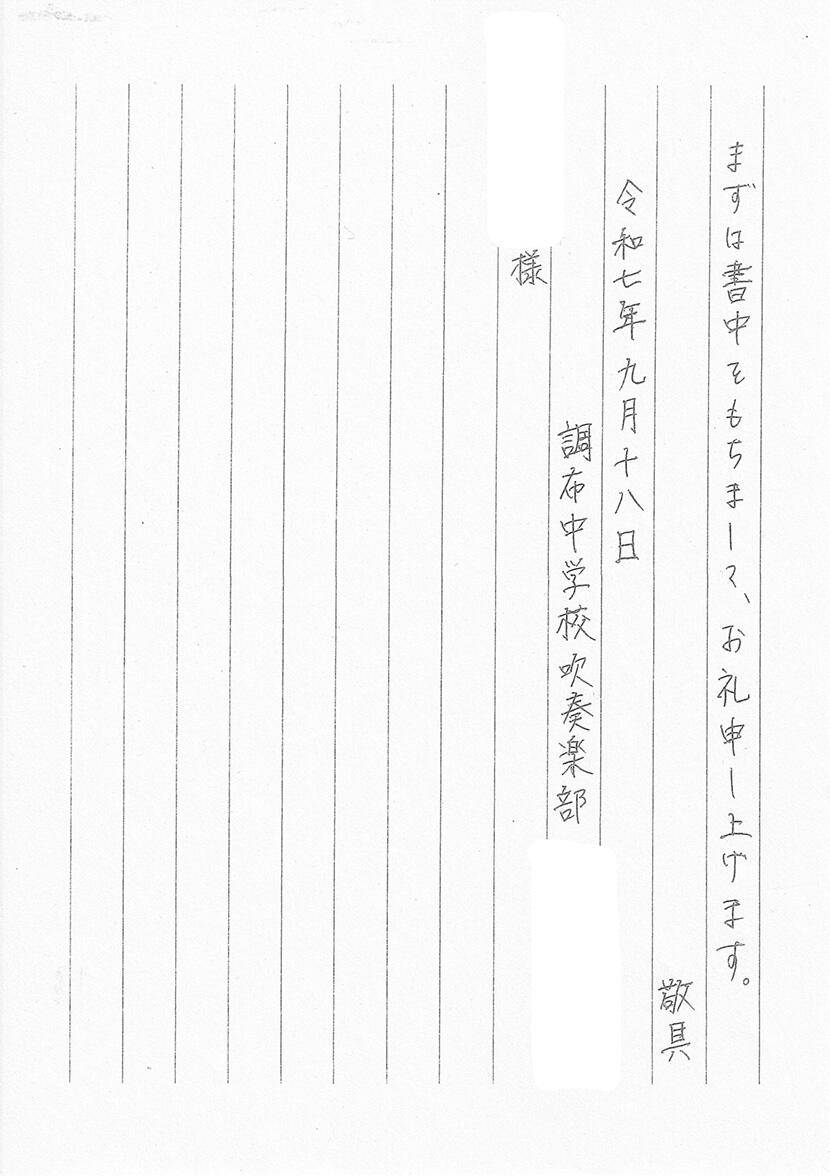 まずは書中をもちまして、お礼申し上げます。
敬具
令和七年九月十八日
調布中学校吹奏楽部
様